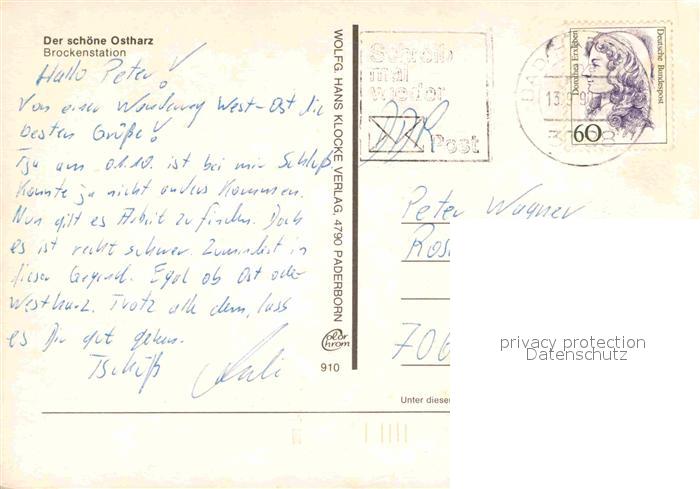 Der schöne Ostharz
Brockenstation
Hallo Peter!
Von einer Wanderung West-Ost die
besten Grüße!
Tja am 01.10. ist bei mir Schluß
Konnte ja nicht anders Kommen.
Nun gilt es Arbeit zu finden. Doch
es ist recht schwer. Zumindest in
dieser Gegend. Egal ob Ost oder
Westharz. Trotz alle dem, lass
es Dir gut gehen.
Tschüß
WOLFG. HANS KLOCKE VERLAG, 4790 PADERBORN
Color
chrom
910
Schreib
mal
wieder
Post
BAD
13.9.9
60
Dorothea Erxleben
Deutsche Bundespost
Peter Wagner
Ros
706
Unter diese
privacy protection
Datenschutz